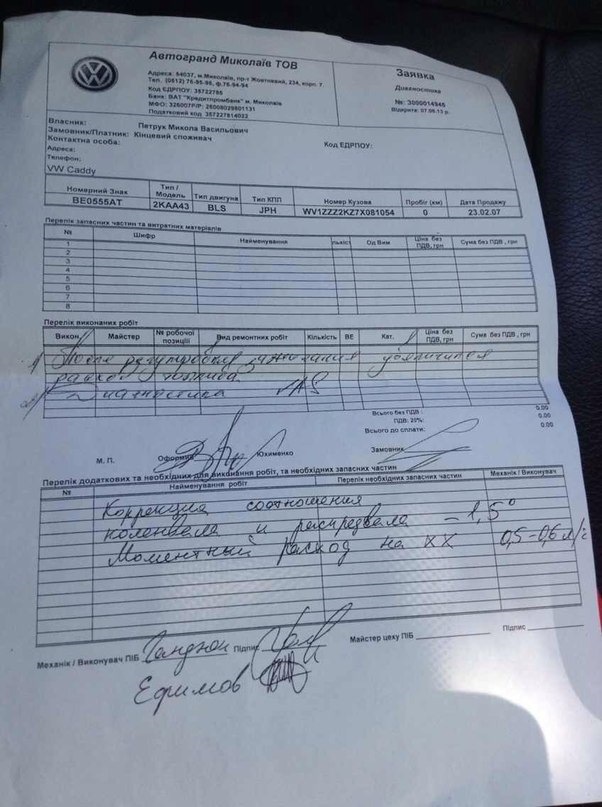 Автогранд Миколаїв ТОВ
Адреса: 54037, м.Миколаїв, пр-т Жовтневий, 234, корп. 7
Тел. (0512) 76-95-96, ф.76-94-94
Код ЕДРПОУ: 35722785
Банк: ВАТ "Кредитпромбанк" м. Миколаїв
МФО: 326007Р/Р: 26008029801131
Податковий код: 357227814022
Заявка
Диагностика
№: 3000014945
Відкрита: 07.08.13 р.
Власник: Петрук Микола Васильович
Замовник/Платник: Кінцевий споживач
Контактна особа:
Код ЕДРПОУ:
Адреса:
Телефон:
VW Caddy
Номерний Знак Тип / Модель Тип двигуна Тип КПП Номер Кузова Пробіг (км) Дата Продажу
BE0555AT 2KAA43 BLS JPH WV1ZZZ2KZ7X081054 0 23.02.07
Перелік запасних частин та витратних матеріалів
№ Шифр Найменування Од Вим Ціна без ПДВ, грн Сума без ПДВ, грн
1
2
3
4
5
6
7
8
Перелік виконаних робіт
Викон. Майстер № робочої позиціії Вид ремонтних робіт Кількість ВЕ Кат. Ціна без ПДВ, грн Сума без ПДВ, грн
1) После регулировки зажигания увеличился
расход топлива.
2) Диагностика
Всього без ПДВ : 0.00
ПДВ: 20%: 0.00
Всього до сплати: 0.00
М. П. Оформив Юхименко Замовник
Перелік додаткових та необхідних для виконання робіт, та необхідних запасних частин
№ Найменування робіт Перелік необхідних запасних частин Механік / Виконувач
Коррекция соотношения
коленвала и распредвала – 1,5°
Моментный расход на ХХ 0,5-0,6 л/ч
Механік / Виконувач ПІБ Підпис Майстер цеху ПІБ Підпис
Ефимов